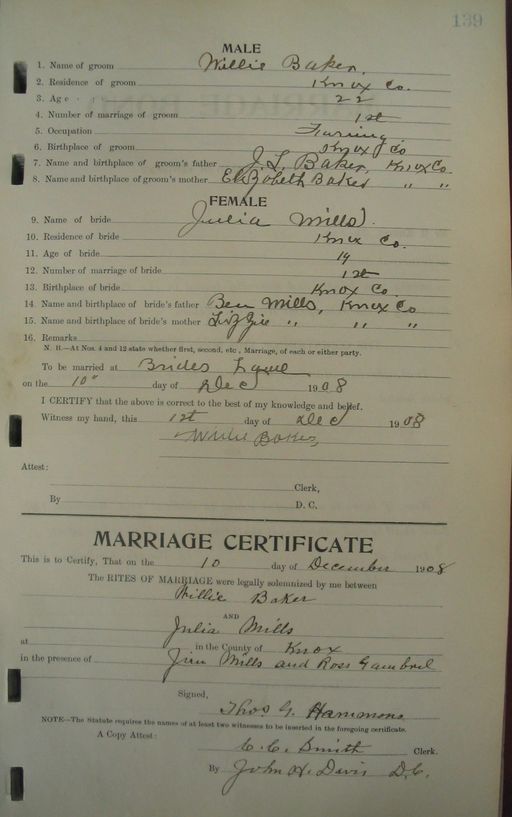 139
MALE
1. Name of groom Willie Baker,
2. Residence of groom Knox Co.
3. Age 22
4. Number of marriage of groom 1st
5. Occupation Farming
6. Birthplace of groom Knox Co
7. Name and birthplace of groom's father J. L. Baker, Knox Co.
8. Name and birthplace of groom's mother Elizobeth Baker " "
FEMALE
9. Name of bride Julia Mills
10. Residence of bride Knox Co.
11. Age of bride 19
12. Number of marriage of bride 1st
13. Birthplace of bride Knox Co.
14. Name and birthplace of bride's father Ben Mills, Knox Co
15. Name and birthplace of bride's mother Lizzie " " "
16. Remarks
N. B.—At Nos. 4 and 12 state whether first, second, etc., Marriage, of each or either party.
To be married at Brides home
on the 10" day of Dec 1908
I CERTIFY that the above is correct to the best of my knowledge and belief.
Witness my hand, this 1st day of Dec 1908
Willie Baker,
Attest:
Clerk,
By D. C.
MARRIAGE CERTIFICATE
This is to Certify, That on the 10 day of December 1908
The RITES OF MARRIAGE were legally solemnized by me between
Willie Baker
AND
Julia Mills
at in the County of Knox
in the presence of Jim Mills and Ross Gambrel
Signed,
Thos. G. Hammons
NOTE—The Statute requires the names of at least two witnesses to be inserted in the foregoing certificate.
A Copy Attest:
C. C. Smith Clerk.
By John H. Davis D.C.